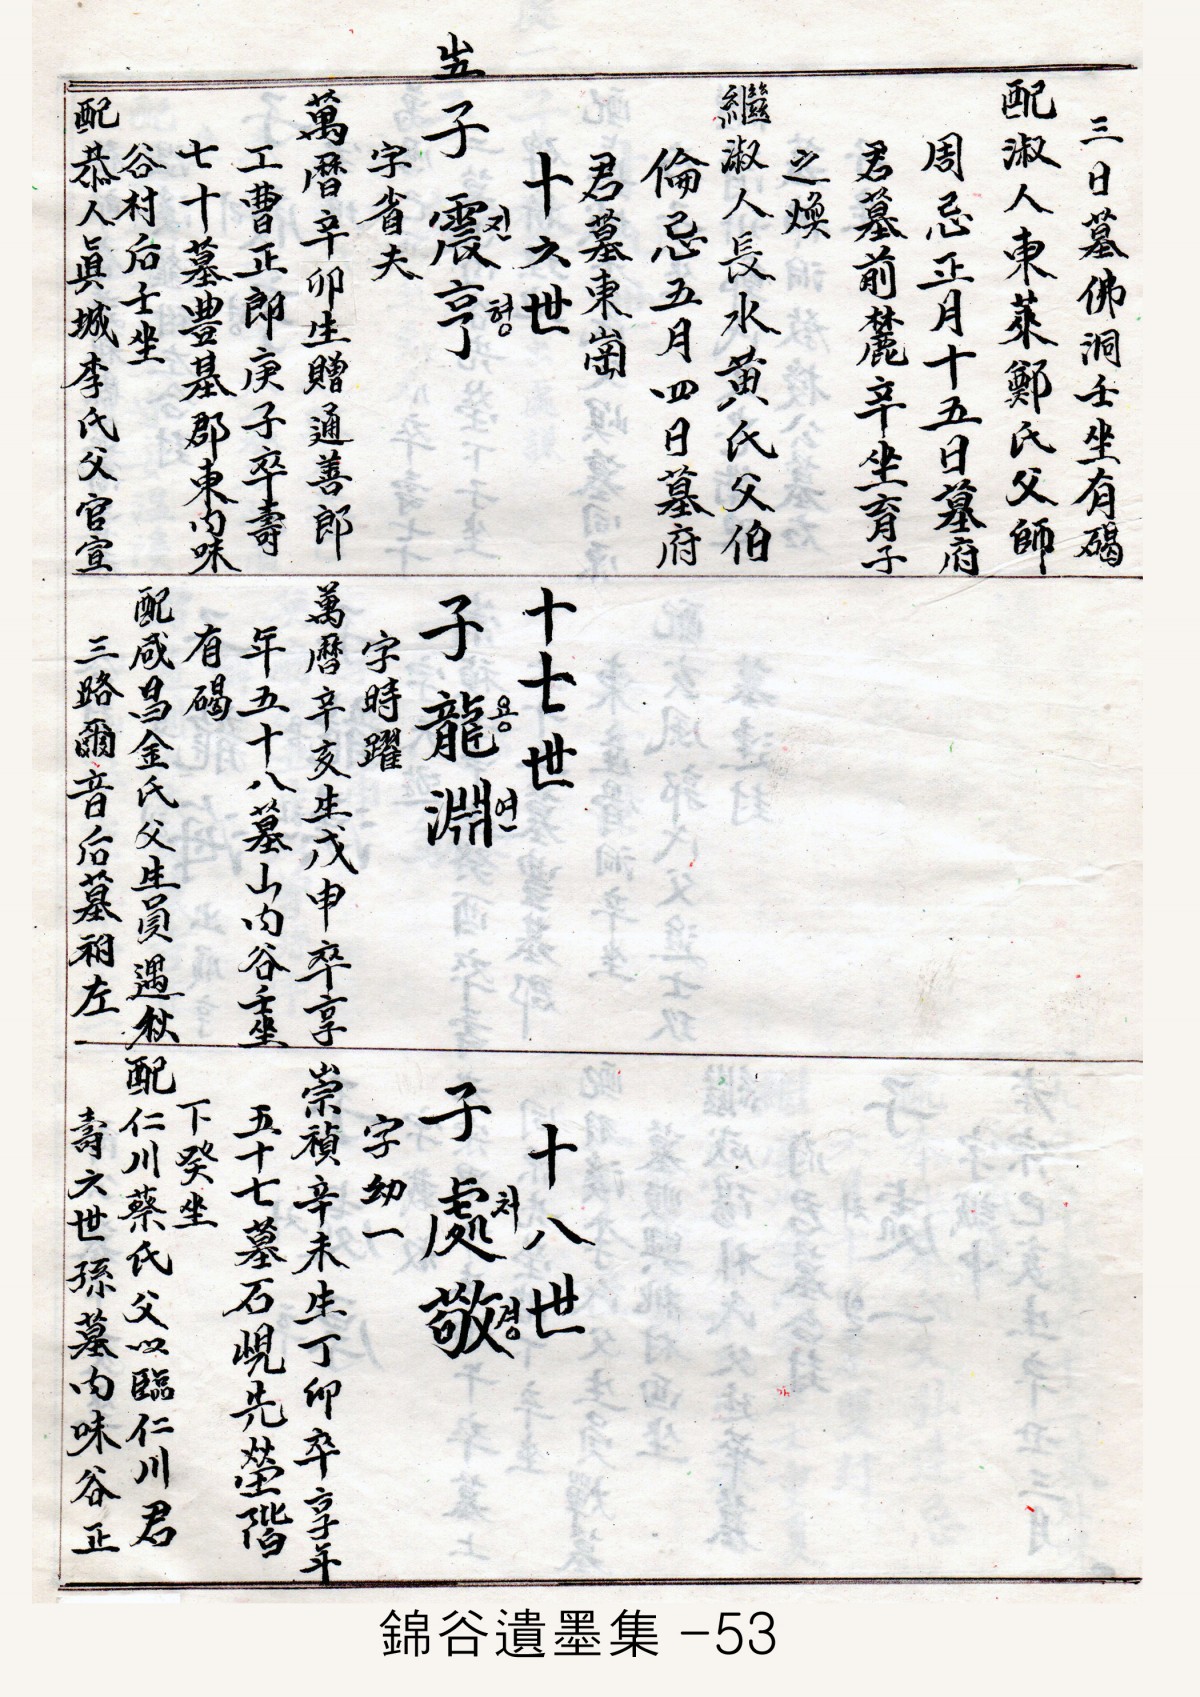 三日墓佛洞壬坐有碣
配淑人東萊鄭氏父師
周忌正月十五日墓府
君墓前麓辛坐育子
之煥
繼淑人長水黃氏父伯
倫忌五月四日墓府
君墓東崗
十六世
子震亨
진형
字省夫
萬曆辛卯生贈通善郎
工曹正郎庚子卒壽
七十墓豊基郡東內味
谷村后壬坐
配恭人眞城李氏父官宣
十七世
子龍淵
용연
字時躍
萬曆辛亥生戊申卒享
年五十八墓山內谷壬坐
有碣
配咸昌金氏父生員遇秋
三路爾音后墓祔左
十八世
子處敬
처경
字幼一
崇禎辛未生丁卯卒享年
五十七墓石峴先塋階
下癸坐
配仁川蔡氏父以臨仁川君
壽六世孫墓內味谷正
錦谷遺墨集 -53